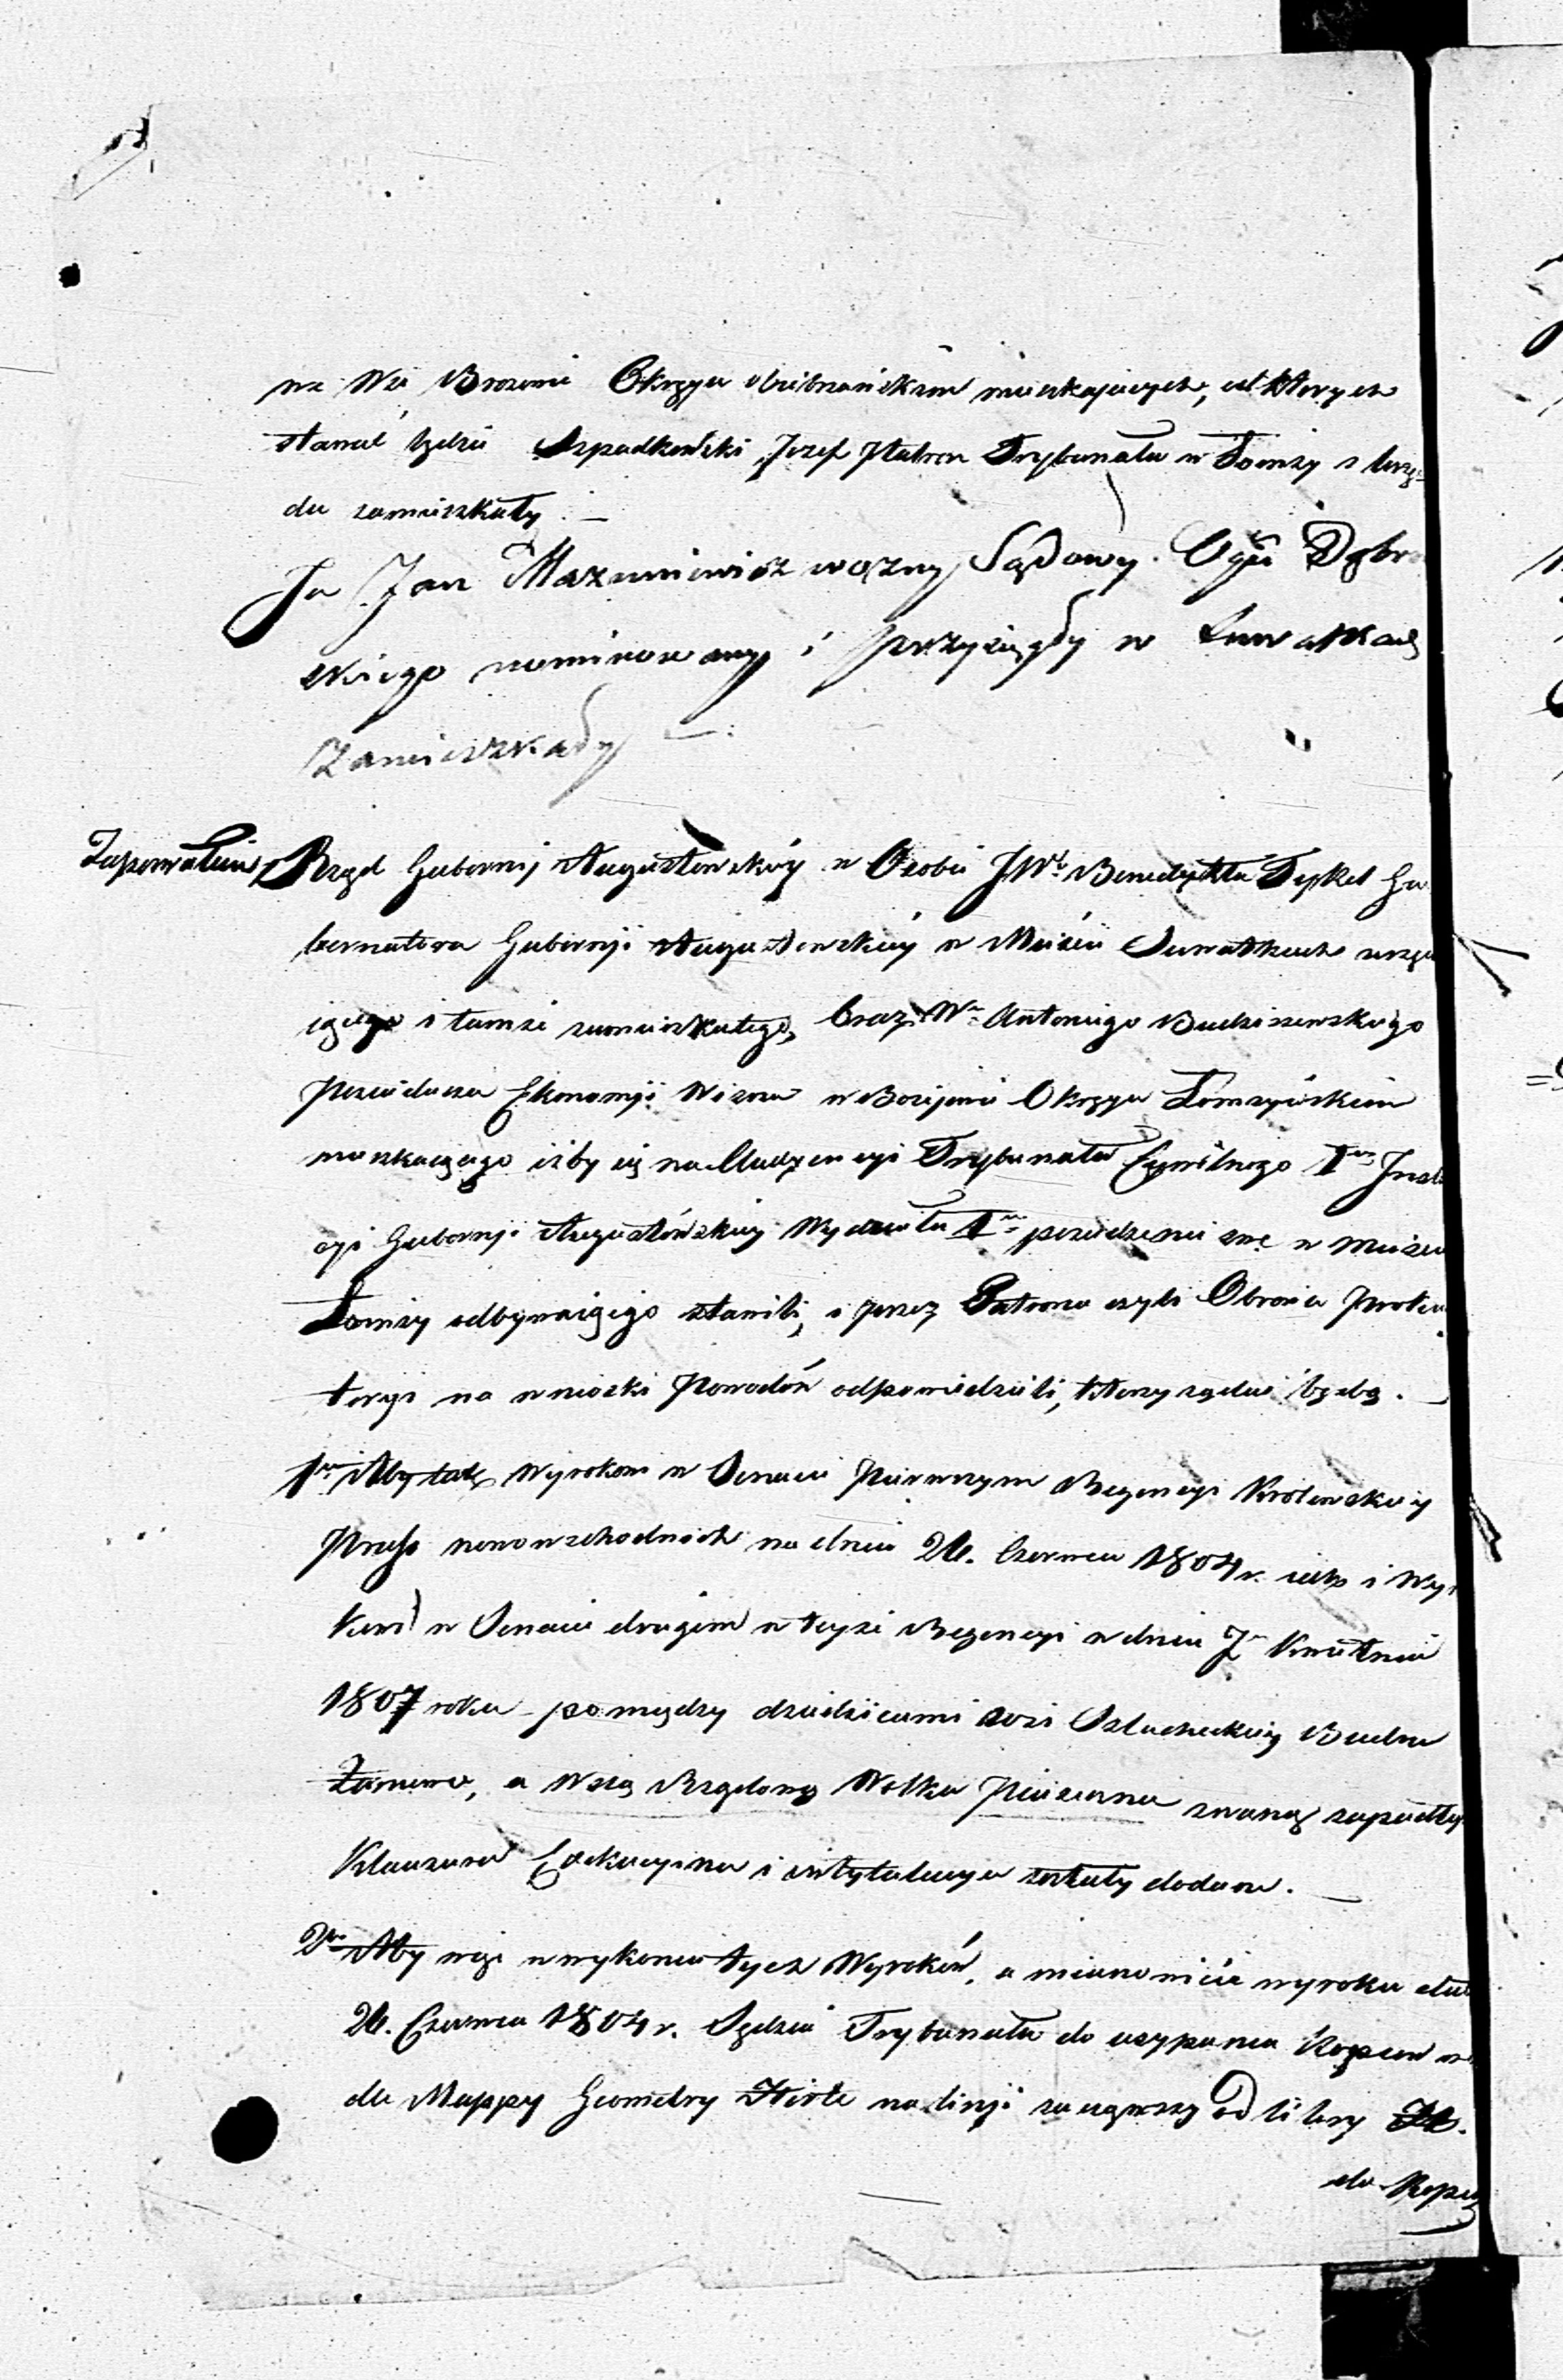 na Wsi Brozowie Okręgu Goniądzkim mieszkających, od których
stawać będzie Szpadkowski Jozef Patron Trybunału w Łomży z urzę-
du zamieszkały. —
Ja Jan Mazuniewicz wozny Sądowy Ogu Dąbro
skiego nominowany i przysięgły w Suwałkach
Zamieszkały —:
Zapozwałem, Rząd Gubernij Augustowskiéy w Osobie JWo Benedykta Tykel Gu
bernatora Gubernji Augustowskiéy w Mieście Suwałkach urzędu
iącego i tamże zamieszkałego, Oraz Wo Antoniego Budziszewskiego
Posiadacza Ekonomji Wizna w Bożejewie Okręgu Łomżyńskim
mieszkającego iżby się na Audyencyi Trybunału Cywilnego 1ey Instan
cyi Gubernji Augustowskiey Wydziału 1o posiedzenie swe w mieście
Łomży odbywaiącego stawili, i przez Patrona czyli Obrońcę Proku
toryi na wnioski Powodów odpowiedzieli, którzy żądać będą. —
1o Aby tak Wyrokowi w Senacie Pierwszym Regencyi Krolewskiey
Pruss nowo wschodnich na dniu 26. Czerwca 1804 r. iako i Wyro
kowi w Senacie drugim w teyże Regencyi w dniu 7o Kwietnia
1807 roku pomiędzy dziedzicami wsi Szlacheckiey Budne
Żarnowo, a Wsią Rządową Wolka Piaseczna zwaną zapadłym
Klauzura Exekucyina i intytulacya zostały dodane. —
2o Aby w wykonaniu tych Wyroków, a mianowicie wyroku z dnia
26. Czerwca 1804 r. Sędzia Trybunału do usypania Kopców we
dle Mappy Geometry na linji zacząwszy od litery
do Kopca